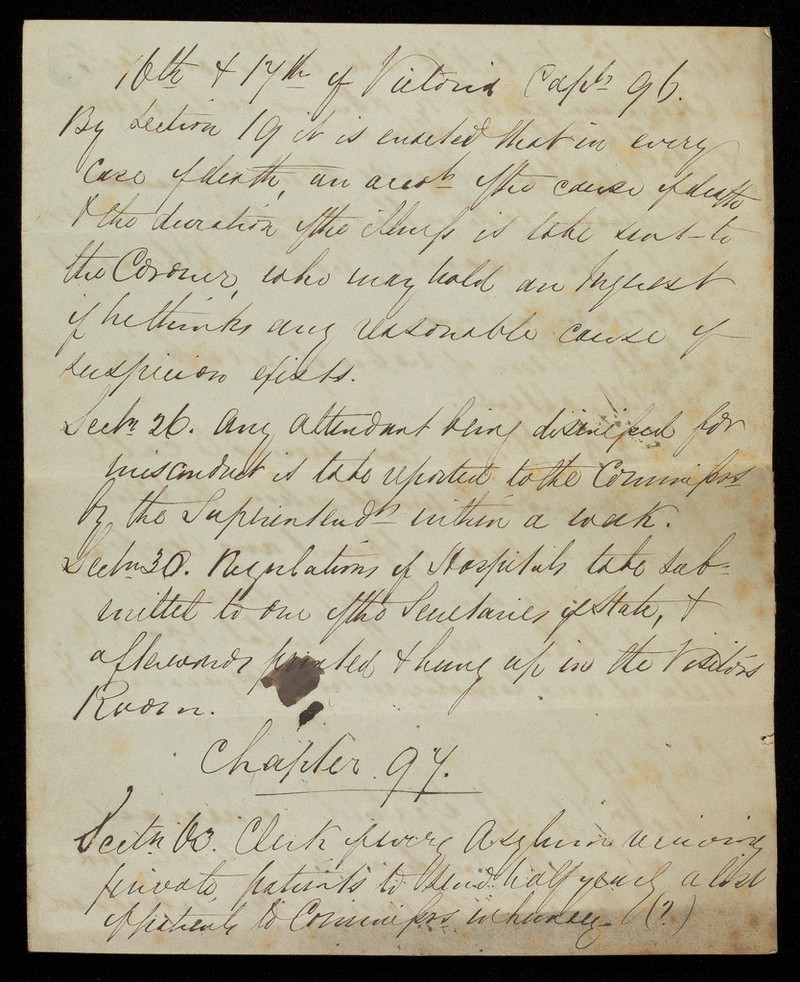 16th & 17th of Victoria Capt 96.
By Section 19 it is enacted that in every
Case of death, an acct of the cause of death
& the duration of the illness is to be sent to
the Coroner, who may hold an Inquest
if he thinks any reasonable cause of
suspicion exists.
Sectn 26. Any attendant being dismissed for
misconduct is to be reported to the Commissrs
by the Superintendt within a week.
Sectn 30. Regulations of Hospitals to be sub-
mitted to one of the Secretaries of State, &
afterwards printed & hung up in the Visitors
Room.
Chapter 97.
Sectn 63. Clerk of every Asylum receiving
private patients to send half yearly a list
of patients to Commissrs in Lunacy. (?)